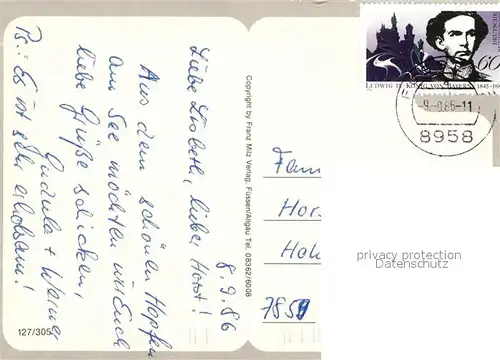 8.9.86
Liebe Lisbeth, lieber Horst!
Aus dem schönen Hopfen
am See möchten wir Euch
liebe Grüße schicken,
Gudula + Werner
Es ist sehr erholsam!
127/305
Copyright by Franz Milz Verlag, Füssen/Allgäu Tel. 08362/6008
LUDWIG II. KÖNIG VON BAYERN 1845-188
60
-9.-9.86-11
8958
Fam
Hors
Hol
7859
privacy protection
Datenschutz